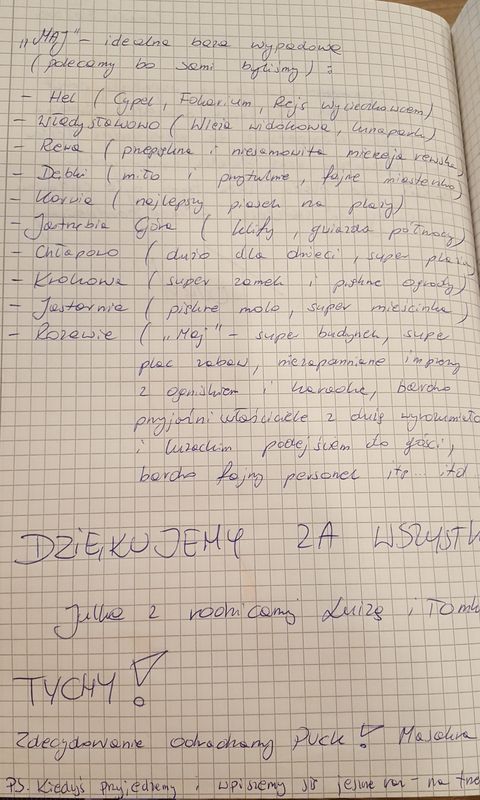 „MAJ" – idealna baza wypadowa
(polecamy bo sami byliśmy) :
– Hel (Cypel, Fokarium, Rejs wycieczkowcem)
– Władysławowo (Wieża widokowa, lunapark)
– Rewa (przepiękna i niesamowita mierzeja rewska)
– Dębki (miło i przytulnie, fajne miasteczko)
– Karwia (najlepszy piasek na plaży)
– Jastrzębia Góra (klify, gwiazda północy)
– Chłapowo (dużo dla dzieci, super plaża)
– Krokowa (super zamek i piękne ogrody)
– Jastarnia (piękne molo, super mieścinka)
– Rozewie („Maj" – super budynek, supe
plac zabaw, niezapomniane imprezy
z ogniskiem i karaoke, bardzo
przyjaźni właściciele z dużą wyrozumiało
i luzackim podejściem do gości,
bardzo fajny personel itp... itd
DZIĘKUJEMY ZA WSZYSTK
Julka z rodzicami Luizą i Tomk
TYCHY!
Zdecydowanie odradzamy PUCK! Masakra
PS. Kiedyś przyjedziemy i wpiszemy się jeszcze raz – na